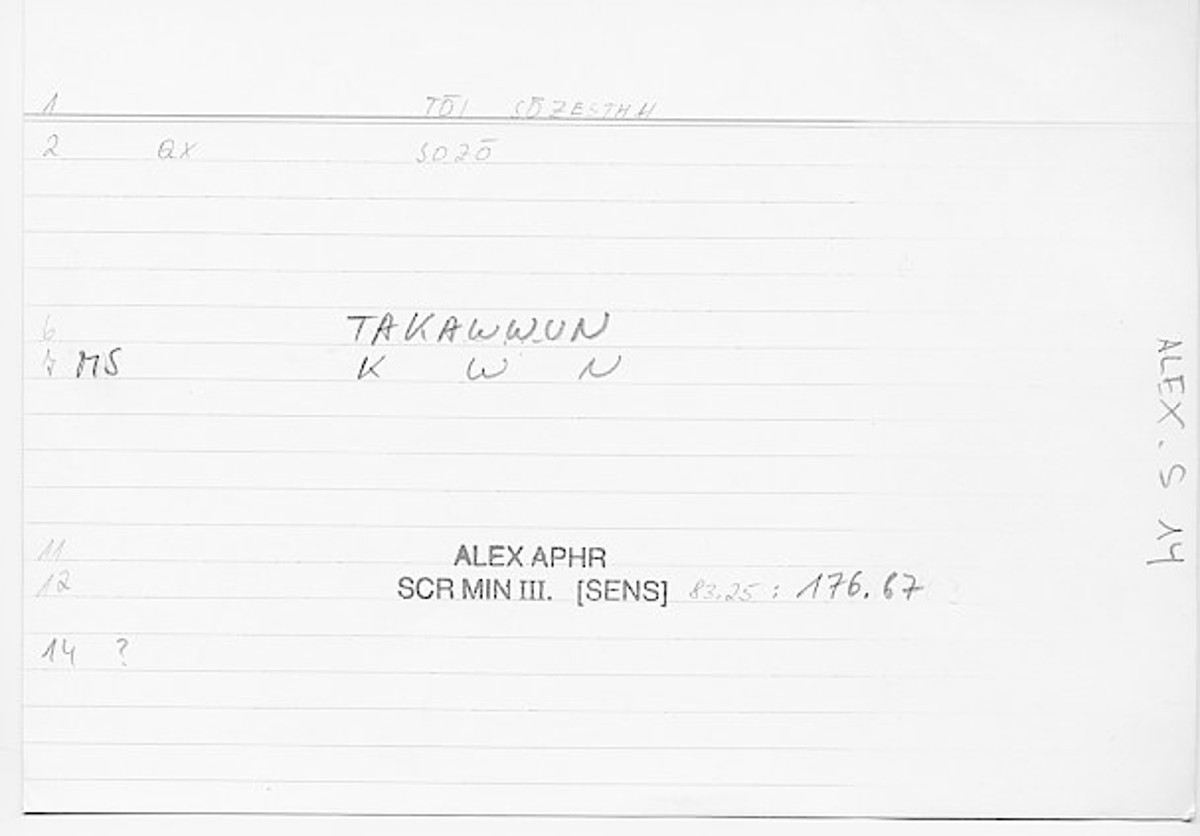 1 TŌI SŌZESTHAI
2 QX SOZŌ
6 TAKAWWUN
7 MS K W N
11 ALEX APHR
12 SCR MIN III. [SENS] 83.25 : 176.67
14 ?
ALEX. S 14